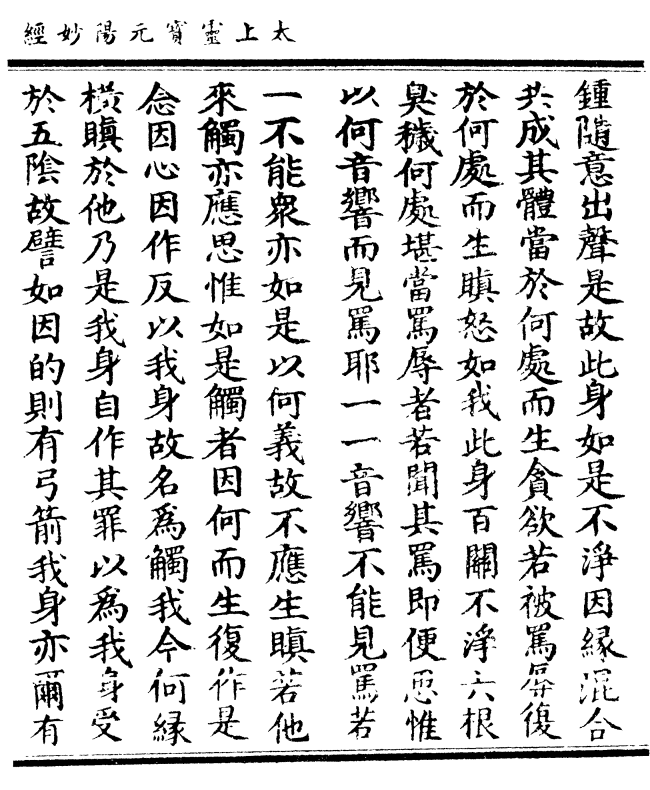 太上靈寳元陽妙經
鍾隨意出聲是故此身如是不淨因縁混合
共成其體當於何處而生貪欲若被罵辱復
於何處而生瞋怒如我此身百關不淨六根
臭穢何處堪當罵辱者若聞其罵即便思惟
以何音響而見罵耶一一音響不能見罵若
一不能衆亦如是以何義故不應生瞋若他
來觸亦應思惟如是觸者因何而生復作是
念因心因作反以我身故名爲觸我今何縁
橫瞋於他乃是我身自作其罪以爲我身受
於五陰故譬如因的則有弓箭我身亦爾有